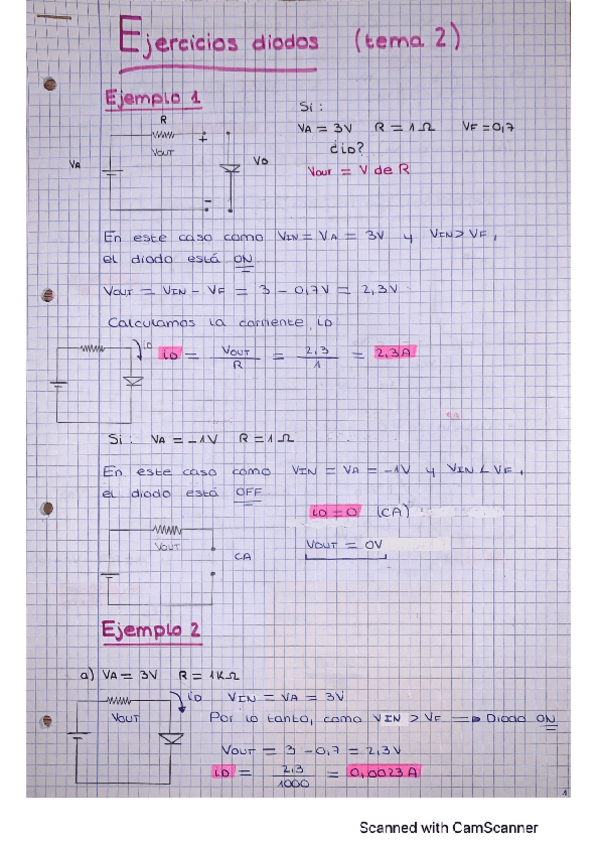 Ejercicios diodos (tema 2)
Ejemplo 1
Si:
VA = 3V R = 1Ω VF = 0,7
¿iD?
VOUT = V de R
R
VOUT
+
VA
VD
-
En este caso como VIN = VA = 3V y VIN > VF,
el diodo está ON.
VOUT = VIN - VF = 3 - 0,7V = 2,3V.
Calculamos la corriente, iD:
iD
iD = VOUT / R = 2,3 / 1 = 2,3A
Si: VA = -1V R = 1Ω
En este caso como VIN = VA = -1V y VIN < VF,
el diodo está OFF.
iD = 0 (CA)
VOUT
VOUT = 0V
CA
Ejemplo 2
a) VA = 3V R = 1KΩ
iD VIN = VA = 3V
VOUT
Por lo tanto, como VIN > VF ⇒ Diodo ON
VOUT = 3 - 0,7 = 2,3V
iD = 2,3 / 1000 = 0,0023A
1
Scanned with CamScanner